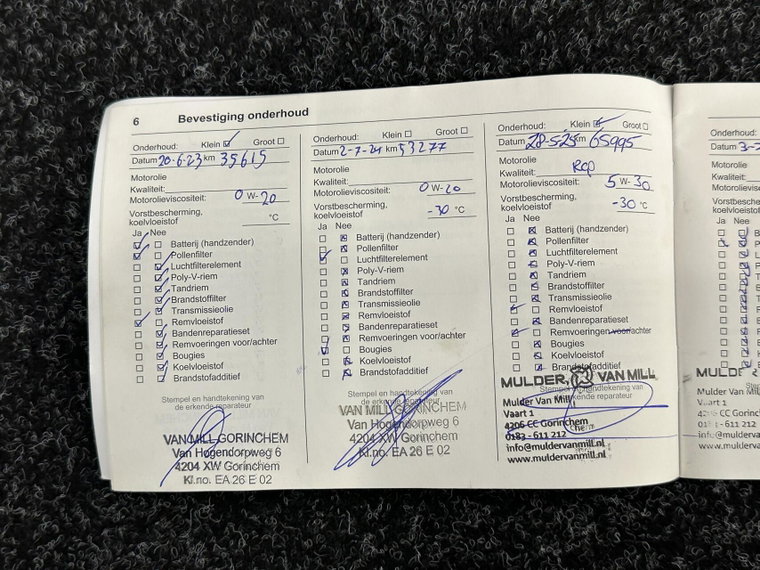 6 Bevestiging onderhoud
Onderhoud: Klein Groot
Datum 20-6-23 km 35615
Motorolie
Kwaliteit:
Motorolieviscositeit: 0 W- 20
Vorstbescherming,
koelvloeistof °C
Ja Nee
Batterij (handzender)
Pollenfilter
Luchtfilterelement
Poly-V-riem
Tandriem
Brandstoffilter
Transmissieolie
Remvloeistof
Bandenreparatieset
Remvoeringen voor/achter
Bougies
Koelvloeistof
Brandstofadditief
Stempel en handtekening van
de erkende reparateur
VAN MILL GORINCHEM
Van Hogendorpweg 6
4204 XW Gorinchem
Kl.no. EA 26 E 02
Onderhoud: Klein Groot
Datum 2-7-24 km 53277
Motorolie
Kwaliteit:
Motorolieviscositeit: 0 W- 20
Vorstbescherming,
koelvloeistof -30 °C
Ja Nee
Batterij (handzender)
Pollenfilter
Luchtfilterelement
Poly-V-riem
Tandriem
Brandstoffilter
Transmissieolie
Remvloeistof
Bandenreparatieset
Remvoeringen voor/achter
Bougies
Koelvloeistof
Brandstofadditief
Stempel en handtekening van
de erkende reparateur
VAN MILL GORINCHEM
Van Hogendorpweg 6
4204 XW Gorinchem
Kl.no. EA 26 E 02
Onderhoud: Klein Groot
Datum 28-5-25 km 65995
Motorolie
Kwaliteit:
Motorolieviscositeit: 5 W- 30
Vorstbescherming,
koelvloeistof -30 °C
Ja Nee
Batterij (handzender)
Pollenfilter
Luchtfilterelement
Poly-V-riem
Tandriem
Brandstoffilter
Transmissieolie
Remvloeistof
Bandenreparatieset
Remvoeringen voor/achter
Bougies
Koelvloeistof
Brandstofadditief
Stempel en handtekening van
de erkende reparateur
MULDER VAN MILL
Mulder Van Mill
Vaart 1
4206 CC Gorinchem
0183 - 611 212
info@muldervanmill.nl
www.muldervanmill.nl
Onderhoud:
Datum
Motorolie
Kwaliteit:
Motorolievis
Vorstbescher
koelvloeistof
Ja Nee
Mulder Van Mi
Gorin
611 212
www.mulder